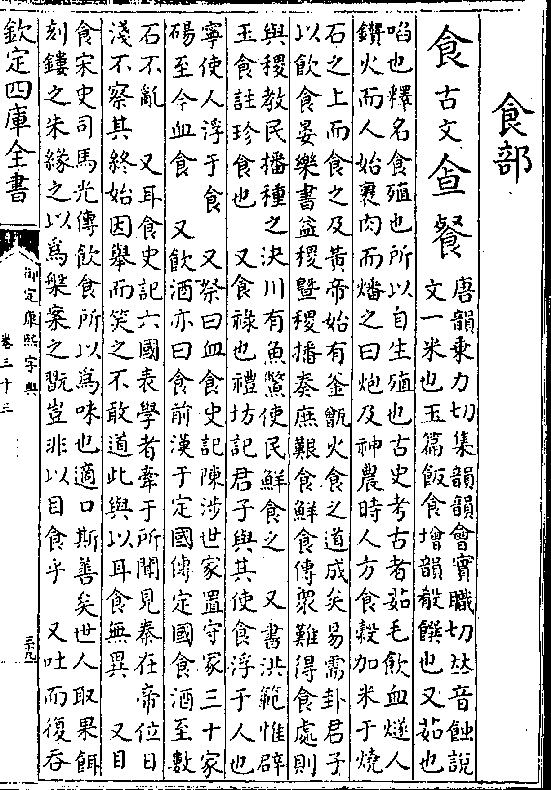 食部
食 古文 𠊊 餐 唐韻乗力切集韻韻會實職切𠀤音蝕説
文一米也玉篇飯食增韻殽饌也又茹也
啗也釋名食殖也所以自生殖也古史考古者茹毛飲血燧人
鑽火而人始裹肉而燔之曰炮及神農時人方食穀加米于燒
石之上而食之及黄帝始有釜甑火食之道成矣易需卦君子
以飲食宴樂書益稷暨稷播奏庶艱食鮮食傳衆難得食處則
與稷教民播種之決川有魚鱉使民鮮食之 又書洪範惟辟
玉食註珍食也 又食祿也禮坊記君子與其使食浮于人也
寧使人浮于食 又祭曰血食史記陳涉世家置守冢三十家
碭至今血食 又飲酒亦曰食前漢于定國傳定國食酒至數
石不亂 又耳食史記六國表學者牽于所聞見秦在帝位日
淺不察其終始因舉而笑之不敢道此與以耳食無異 又目
食宋史司馬光傳飲食所以爲味也適口斯善矣世人取果餌
刻鏤之朱緣之以爲槃案之翫豈非以目食乎 又吐而復吞
欽定四庫全書
御定康熙字典
卷三十三